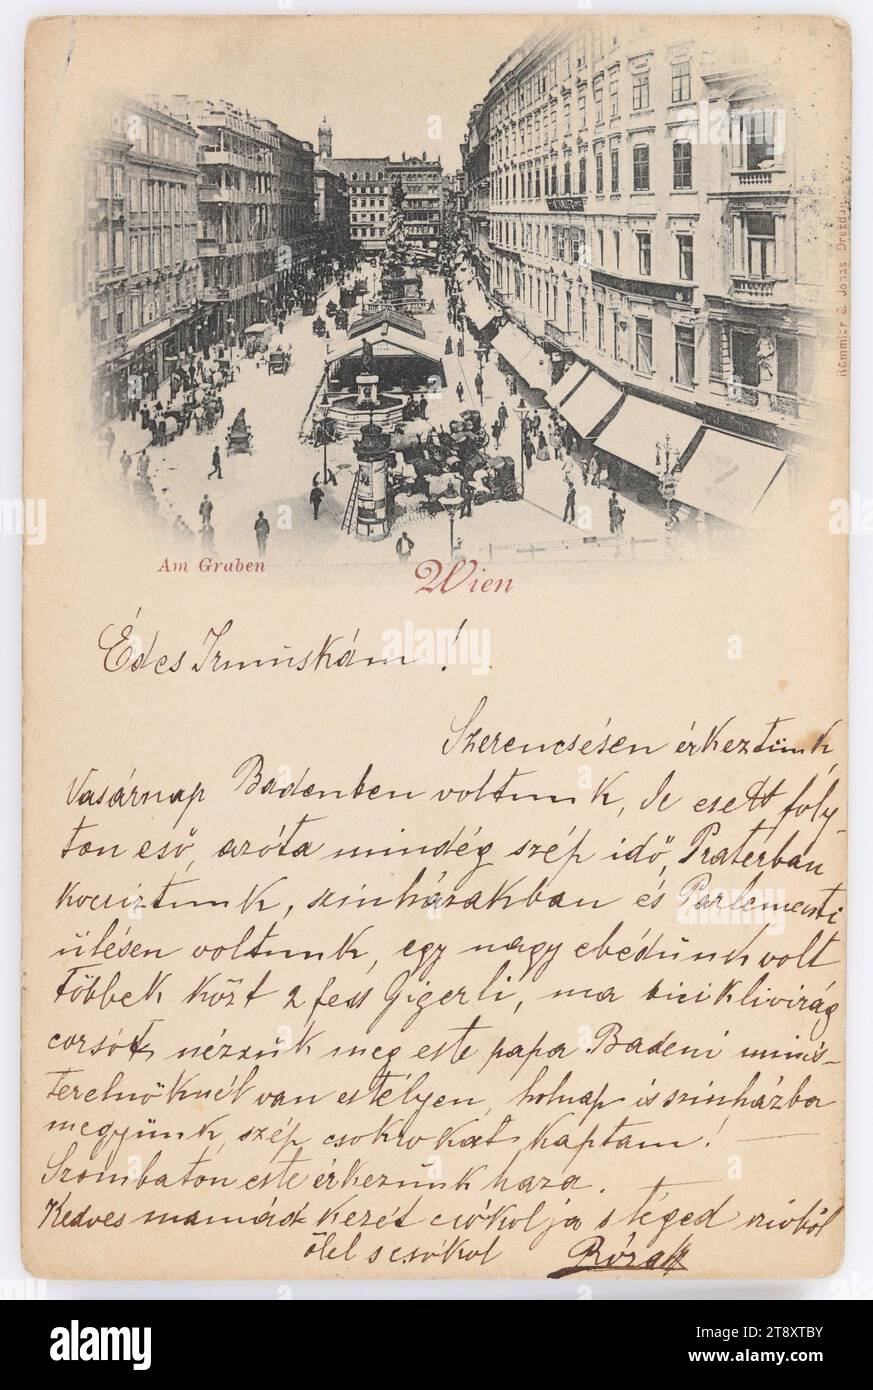 Römmler & Jonas Dresden
Am Graben
Wien
Édes Irmuskám!
Szerencsésen érkeztünk,
Vasárnap Badenben voltunk, de esett foly-
ton eső, azóta mindég szép idő, Praterban
kocsiztunk, színházakban és Parlementi
ülésen voltunk, egy nagy ebédünk volt
többek közt 2 fess Gigerli, ma biciklivirág
corsót nézzük meg este papa Badeni minis-
terelnöknél van estélyen, holnap is színházba
megyünk, szép csokrokat kaptam!
Szombaton este érkezünk haza.
Kedves mamád kezét csókolja s téged szivből
ölel s csókol Rózsa
alamy
a
alamy
Image ID: 2T8XTBY
www.alamy.com